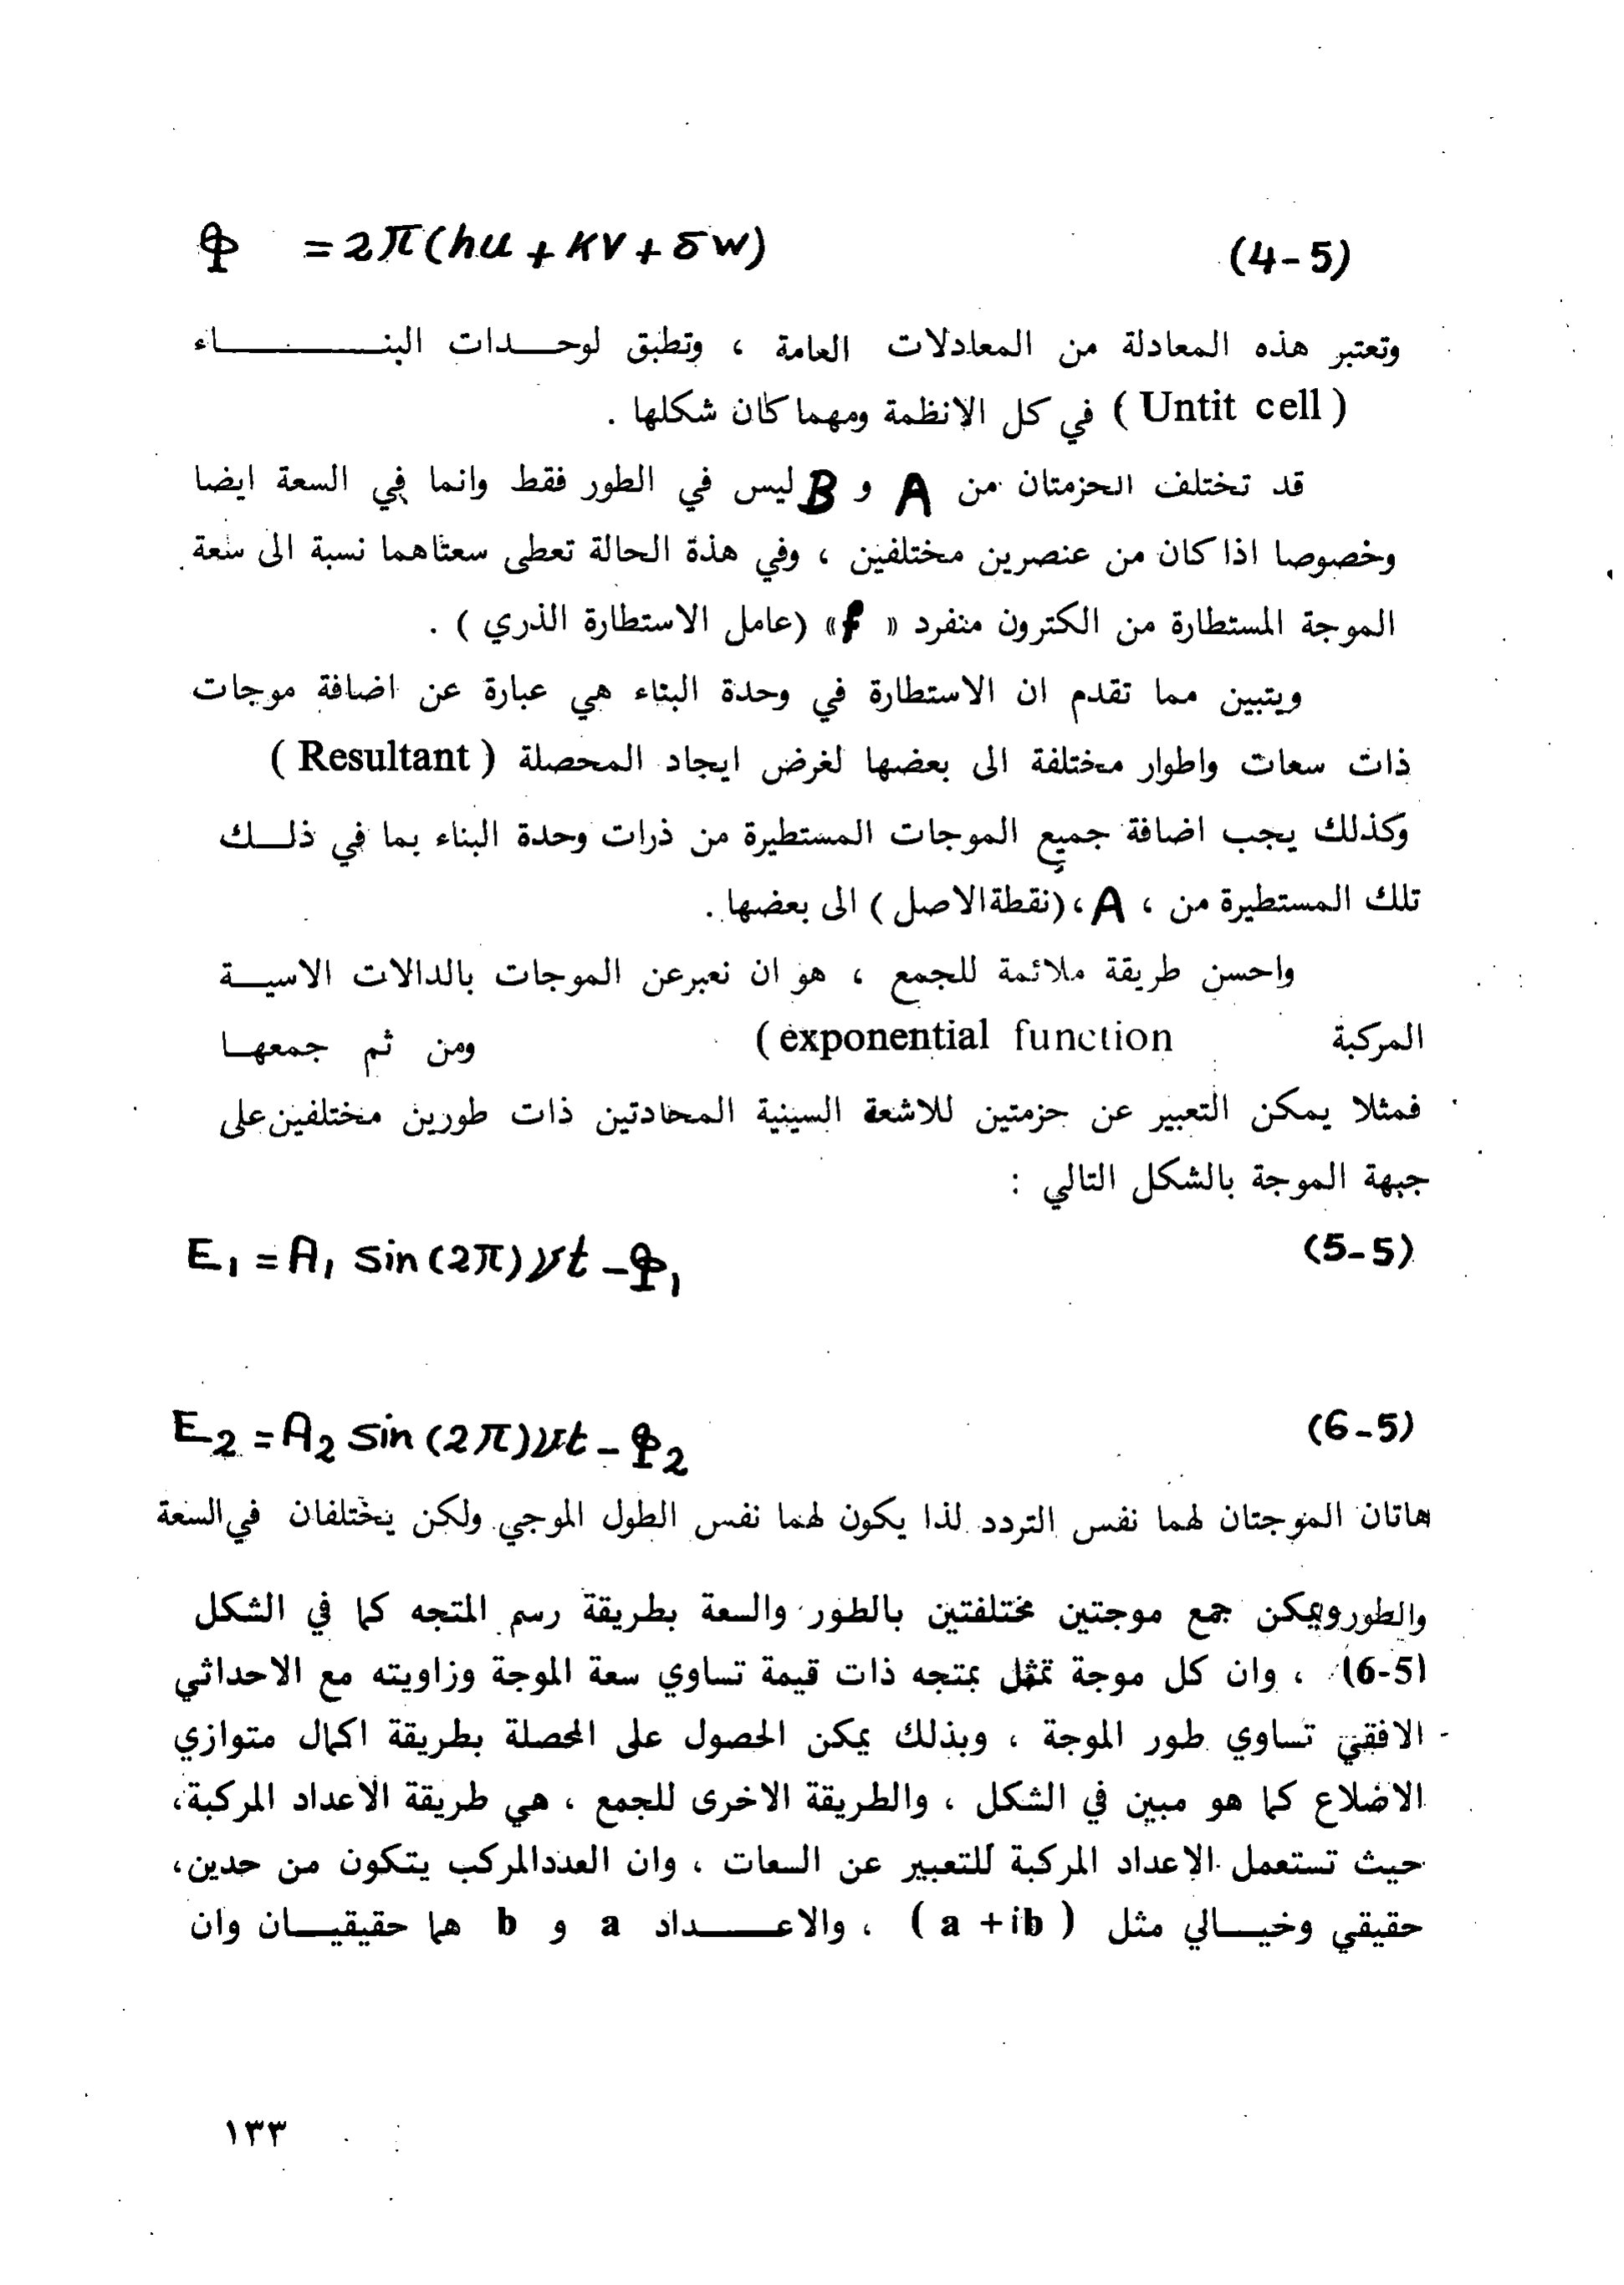 Φ = 2π(hu + KV + δw) (4-5)
وتعتبر هذه المعادلة من المعادلات العامة ، وتطبق لوحـدات البنـــاء
( Untit cell ) في كل الانظمة ومهما كان شكلها .
قد تختلف الحزمتان من A و B ليس في الطور فقط وانما في السعة ايضا
وخصوصا اذا كان من عنصرين مختلفين ، وفي هذة الحالة تعطى سعتاهما نسبة الى سعة
الموجة المستطارة من الكترون منفرد « f » (عامل الاستطارة الذري ) .
ويتبين مما تقدم ان الاستطارة في وحدة البناء هي عبارة عن اضافة موجات
ذات سعات واطوار مختلفة الى بعضها لغرض ايجاد المحصلة ( Resultant )
وكذلك يجب اضافة جميع الموجات المستطيرة من ذرات وحدة البناء بما في ذلـك
تلك المستطيرة من ، A ، (نقطة الاصل ) الى بعضها .
واحسن طريقة ملائمة للجمع ، هو ان نعبر عن الموجات بالدالات الاسيـة
المركبة exponential function ) ومن ثم جمعهـا
فمثلا يمكن التعبير عن حزمتين للاشعة السينية المحادتين ذات طورين مختلفين على
جبهة الموجة بالشكل التالي :
E₁ = A₁ sin(2π)νt - Φ₁ (5-5)
E₂ = A₂ sin(2π)νt - Φ₂ (6-5)
هاتان الموجتان لهما نفس التردد لذا يكون لهما نفس الطول الموجي ولكن يختلفان في السعة
والطور ويمكن جمع موجتين مختلفتين بالطور والسعة بطريقة رسم المتجه كما في الشكل
(6-5) ، وان كل موجة تمثل بمتجه ذات قيمة تساوي سعة الموجة وزاويته مع الاحداثي
الافقي تساوي طور الموجة ، وبذلك يمكن الحصول على المحصلة بطريقة اكمال متوازي
الاضلاع كما هو مبين في الشكل ، والطريقة الاخرى للجمع ، هي طريقة الاعداد المركبة،
حيث تستعمل الاعداد المركبة للتعبير عن السعات ، وان العدد المركب يتكون من حدين،
حقيقي وخيـالي مثل ( a + ib ) ، والاعـــداد a و b هما حقيقيـان وان
١٣٣